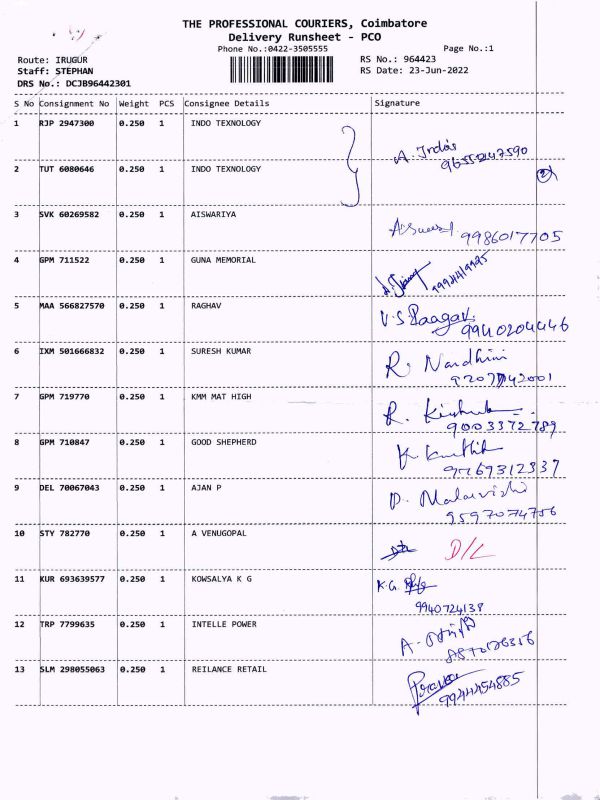 THE PROFESSIONAL COURIERS, Coimbatore
Delivery Runsheet - PCO
Phone No.:0422-3505555 Page No.:1
Route: IRUGUR RS No.: 964423
Staff: STEPHAN RS Date: 23-Jun-2022
DRS No.: DCJB96442301
S No Consignment No Weight PCS Consignee Details Signature
1 RJP 2947300 0.250 1 INDO TEXNOLOGY
A. Indos
2 TUT 6080646 0.250 1 INDO TEXNOLOGY
2
3 SVK 60269582 0.250 1 AISWARIYA
9986017705
4 GPM 711522 0.250 1 GUNA MEMORIAL
5 MAA 566827570 0.250 1 RAGHAV
V.S Raagav.
99440204446
6 IXM 501666832 0.250 1 SURESH KUMAR
R. Nandhini
7 GPM 719770 0.250 1 KMM MAT HIGH
R.
9003372789
8 GPM 710847 0.250 1 GOOD SHEPHERD
K. Karthik
9 DEL 70067043 0.250 1 AJAN P
P. Malarvizhi
9597074756
10 STY 782770 0.250 1 A VENUGOPAL
D/L
11 KUR 693639577 0.250 1 KOWSALYA K G
K.G.
9940724138
12 TRP 7799635 0.250 1 INTELLE POWER
A.
13 SLM 298055063 0.250 1 REILANCE RETAIL
9944454885